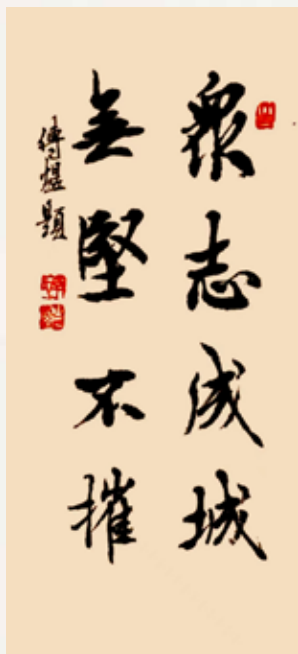 眾志成城
無堅不摧
傅煜題